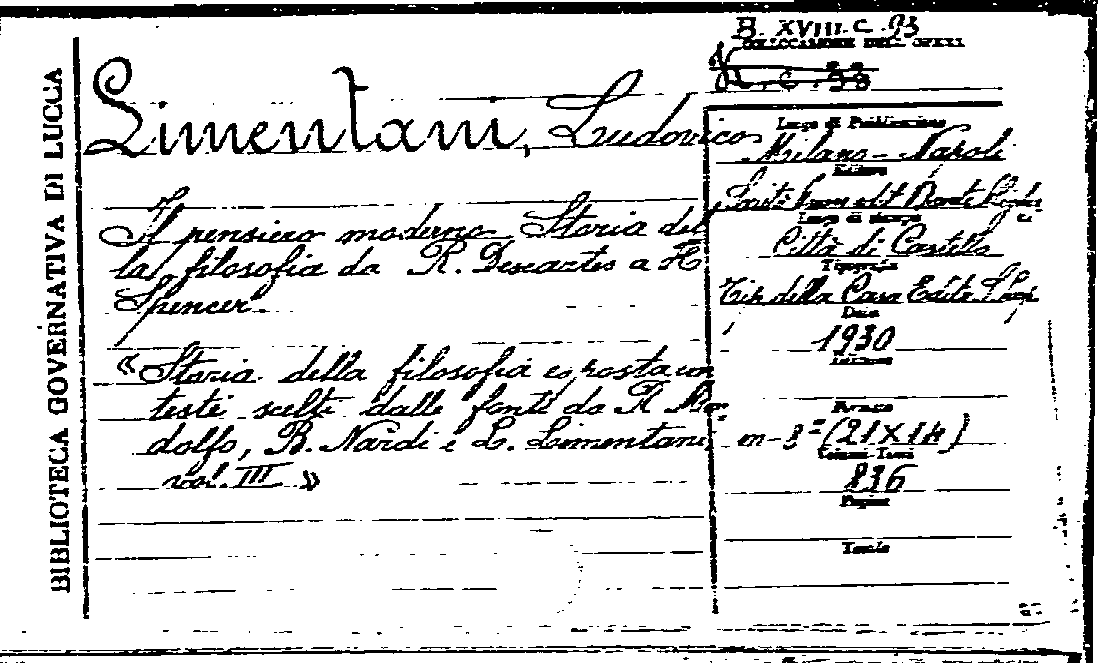 BIBLIOTECA GOVERNATIVA DI LUCCA
B. XVIII. C. 93
COLLOCAZIONE DELL'OPERA
Limentani, Ludovico
Il pensiero moderno Storia del
la filosofia da R. Descartes a H
Spencer.
«Storia della filosofia esposta con
testi scelti dalle fonti da R Mon
dolfo, B. Nardi e L. Limentani,
vol. III »
Luogo di Pubblicazione
Milano - Napoli
Editore
Dante
Luogo di stampa
Città di Castello
Tipografia
Tip. della Casa Edit.
Data
1930
Formato
m-8° (21X14)
Volumi-Tomi
836
Pagine
Tavole